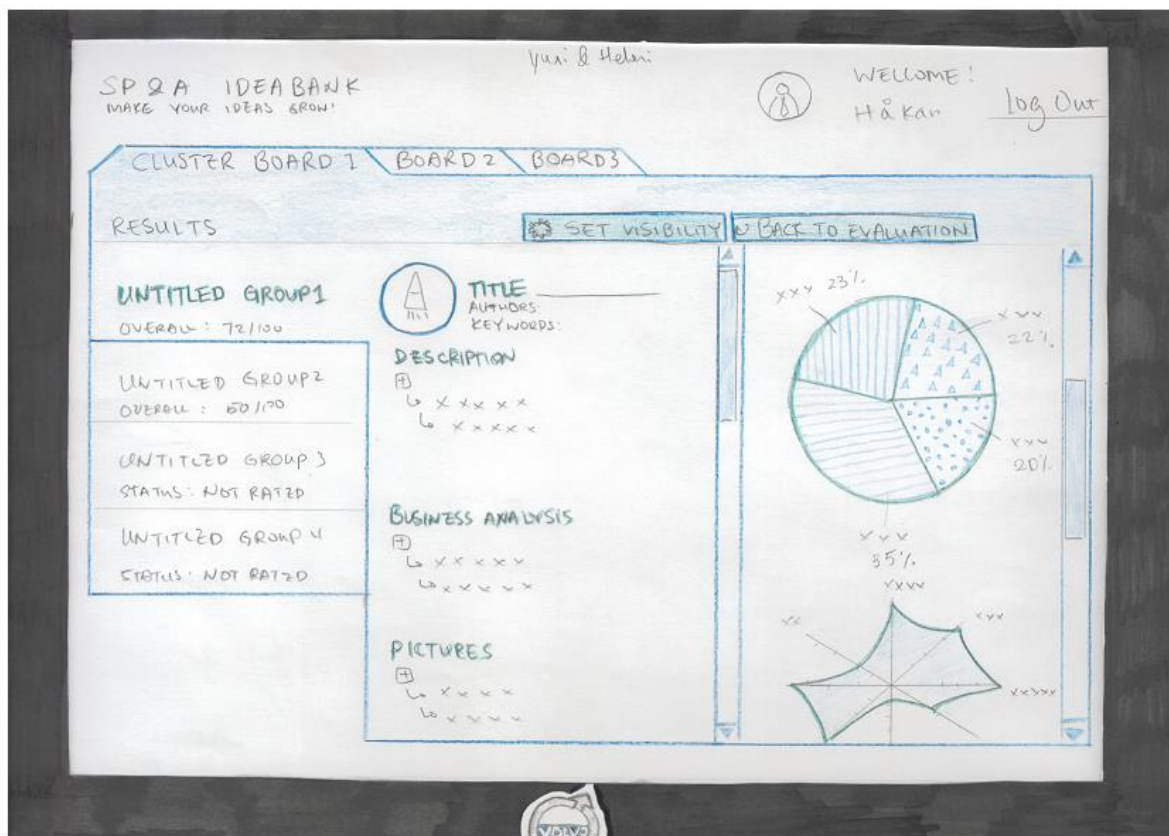 Yuri & Heleri
SP & A IDEABANK
MAKE YOUR IDEAS GROW!
WELCOME!
Håkan
Log Out
CLUSTER BOARD 1
BOARD 2
BOARD3
RESULTS
SET VISIBILITY
BACK TO EVALUATION
UNTITLED GROUP1
OVERALL: 72/100
UNTITLED GROUP2
OVERALL: 50/100
UNTITLED GROUP 3
STATUS: NOT RATED
UNTITLED GROUP 4
STATUS: NOT RATED
TITLE
AUTHORS:
KEYWORDS:
DESCRIPTION
x x x x x
x x x x x
BUSINESS ANALYSIS
x x x x x
x x x x x
PICTURES
x x x x
x x x x
xxx 23%
xxx
22%
xxx
20%
xxx
35%
xxxx
xx
xxx
xxxxx
VOLVO